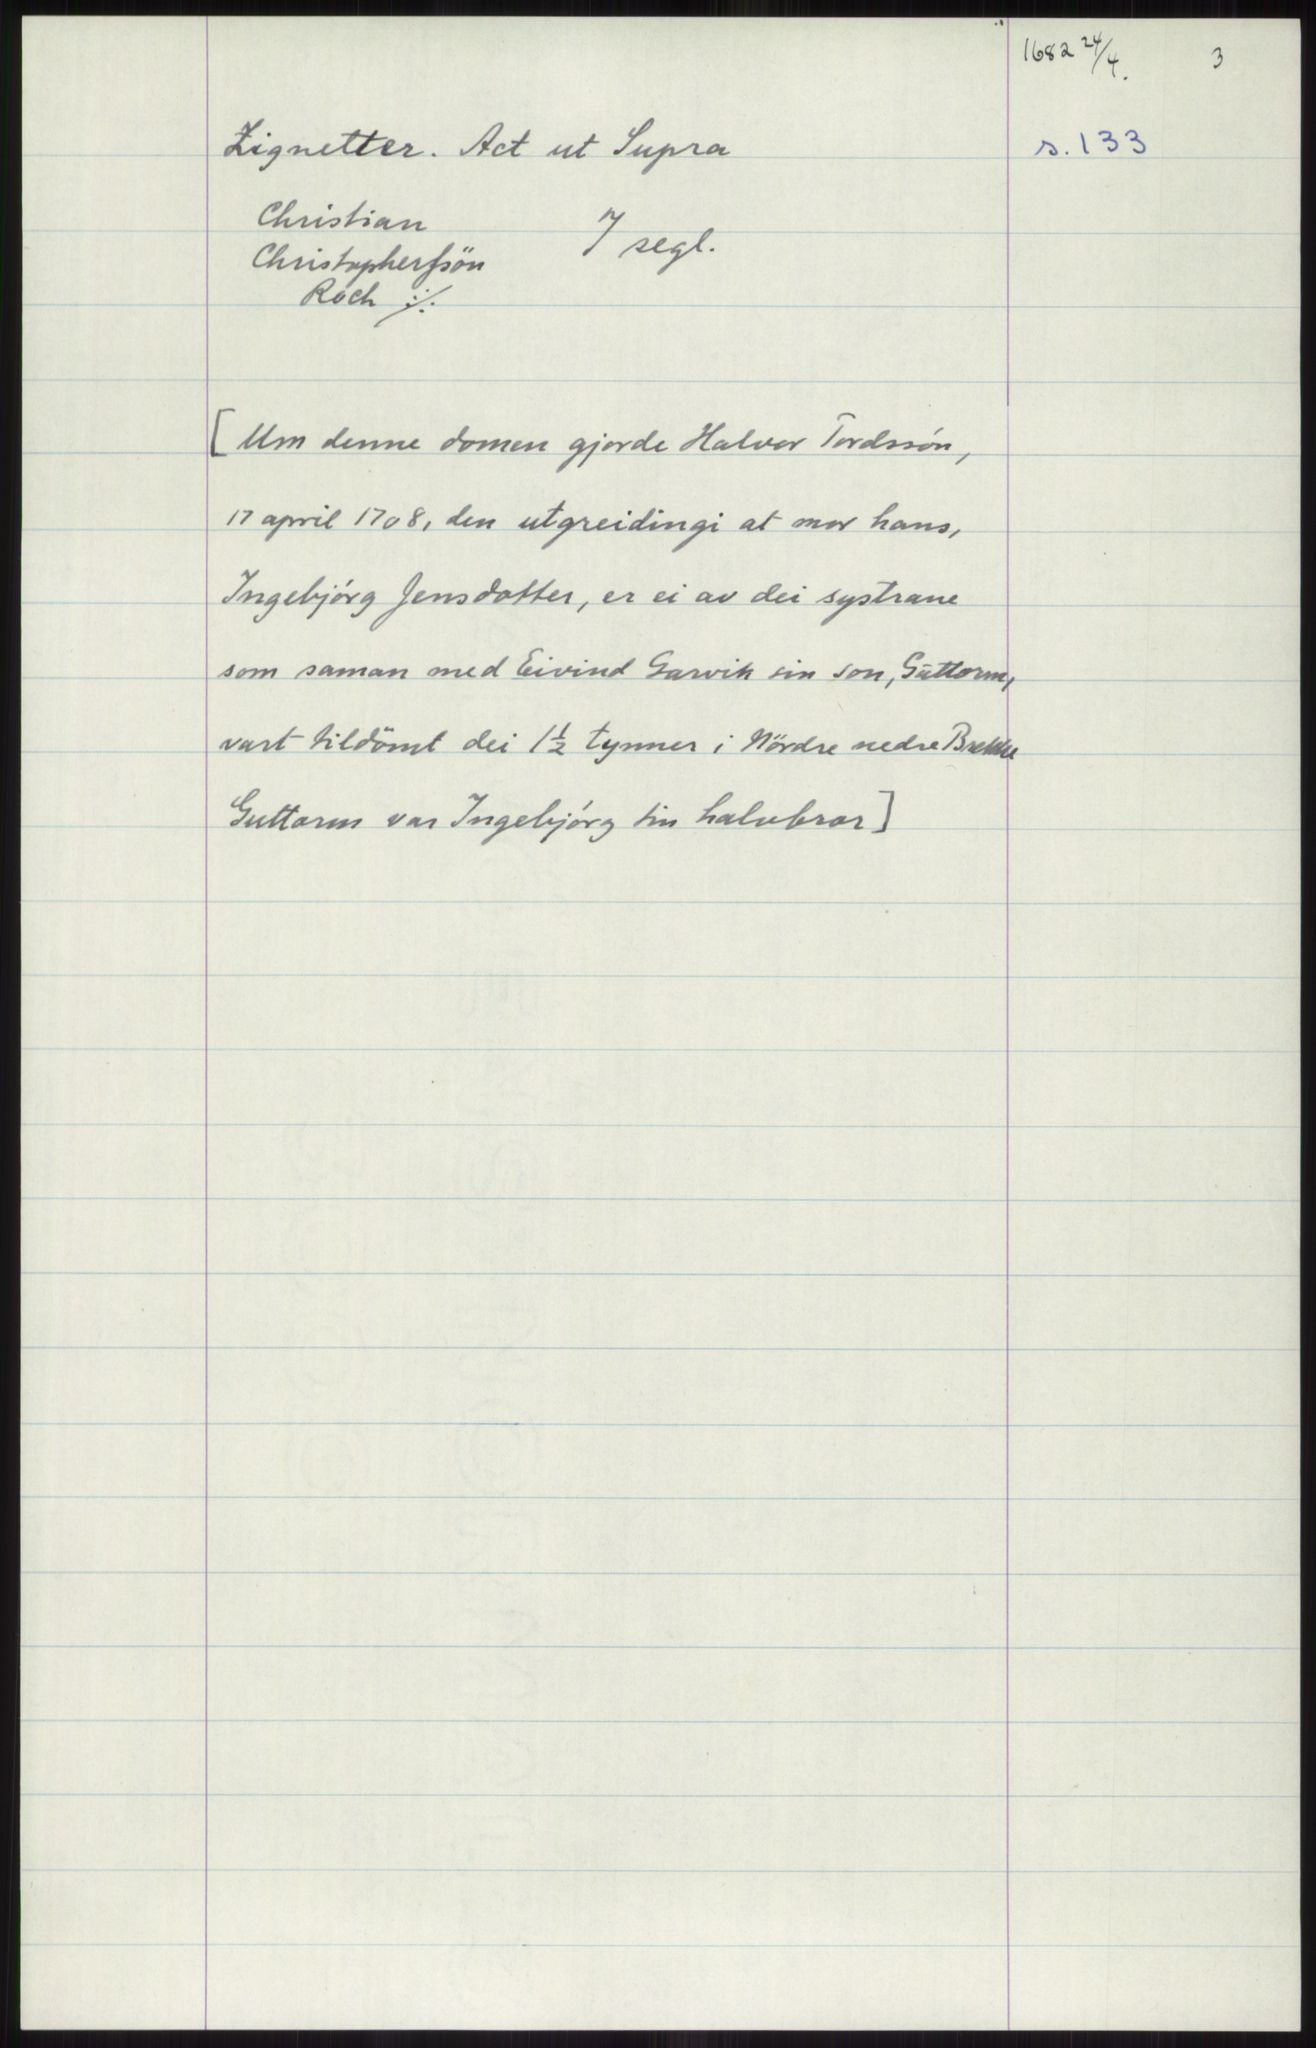 1682 24/4. 3
Zignetter. Act ut Supra s. 133
Christian
Christopherſsön 7 segl.
Roch ./.
[Um denne domen gjorde Halvor Tordssón,
17 april 1708, den utgreidingi at mor hans,
Ingebjórg Jensdotter, er ei av dei systrane
som saman med Eivind Garvik sin son, Gūttorm,
vart tildömt dei 1½ tynner i Nördre nedre Brekke
Guttorm var Ingebjórg sin halvbror]